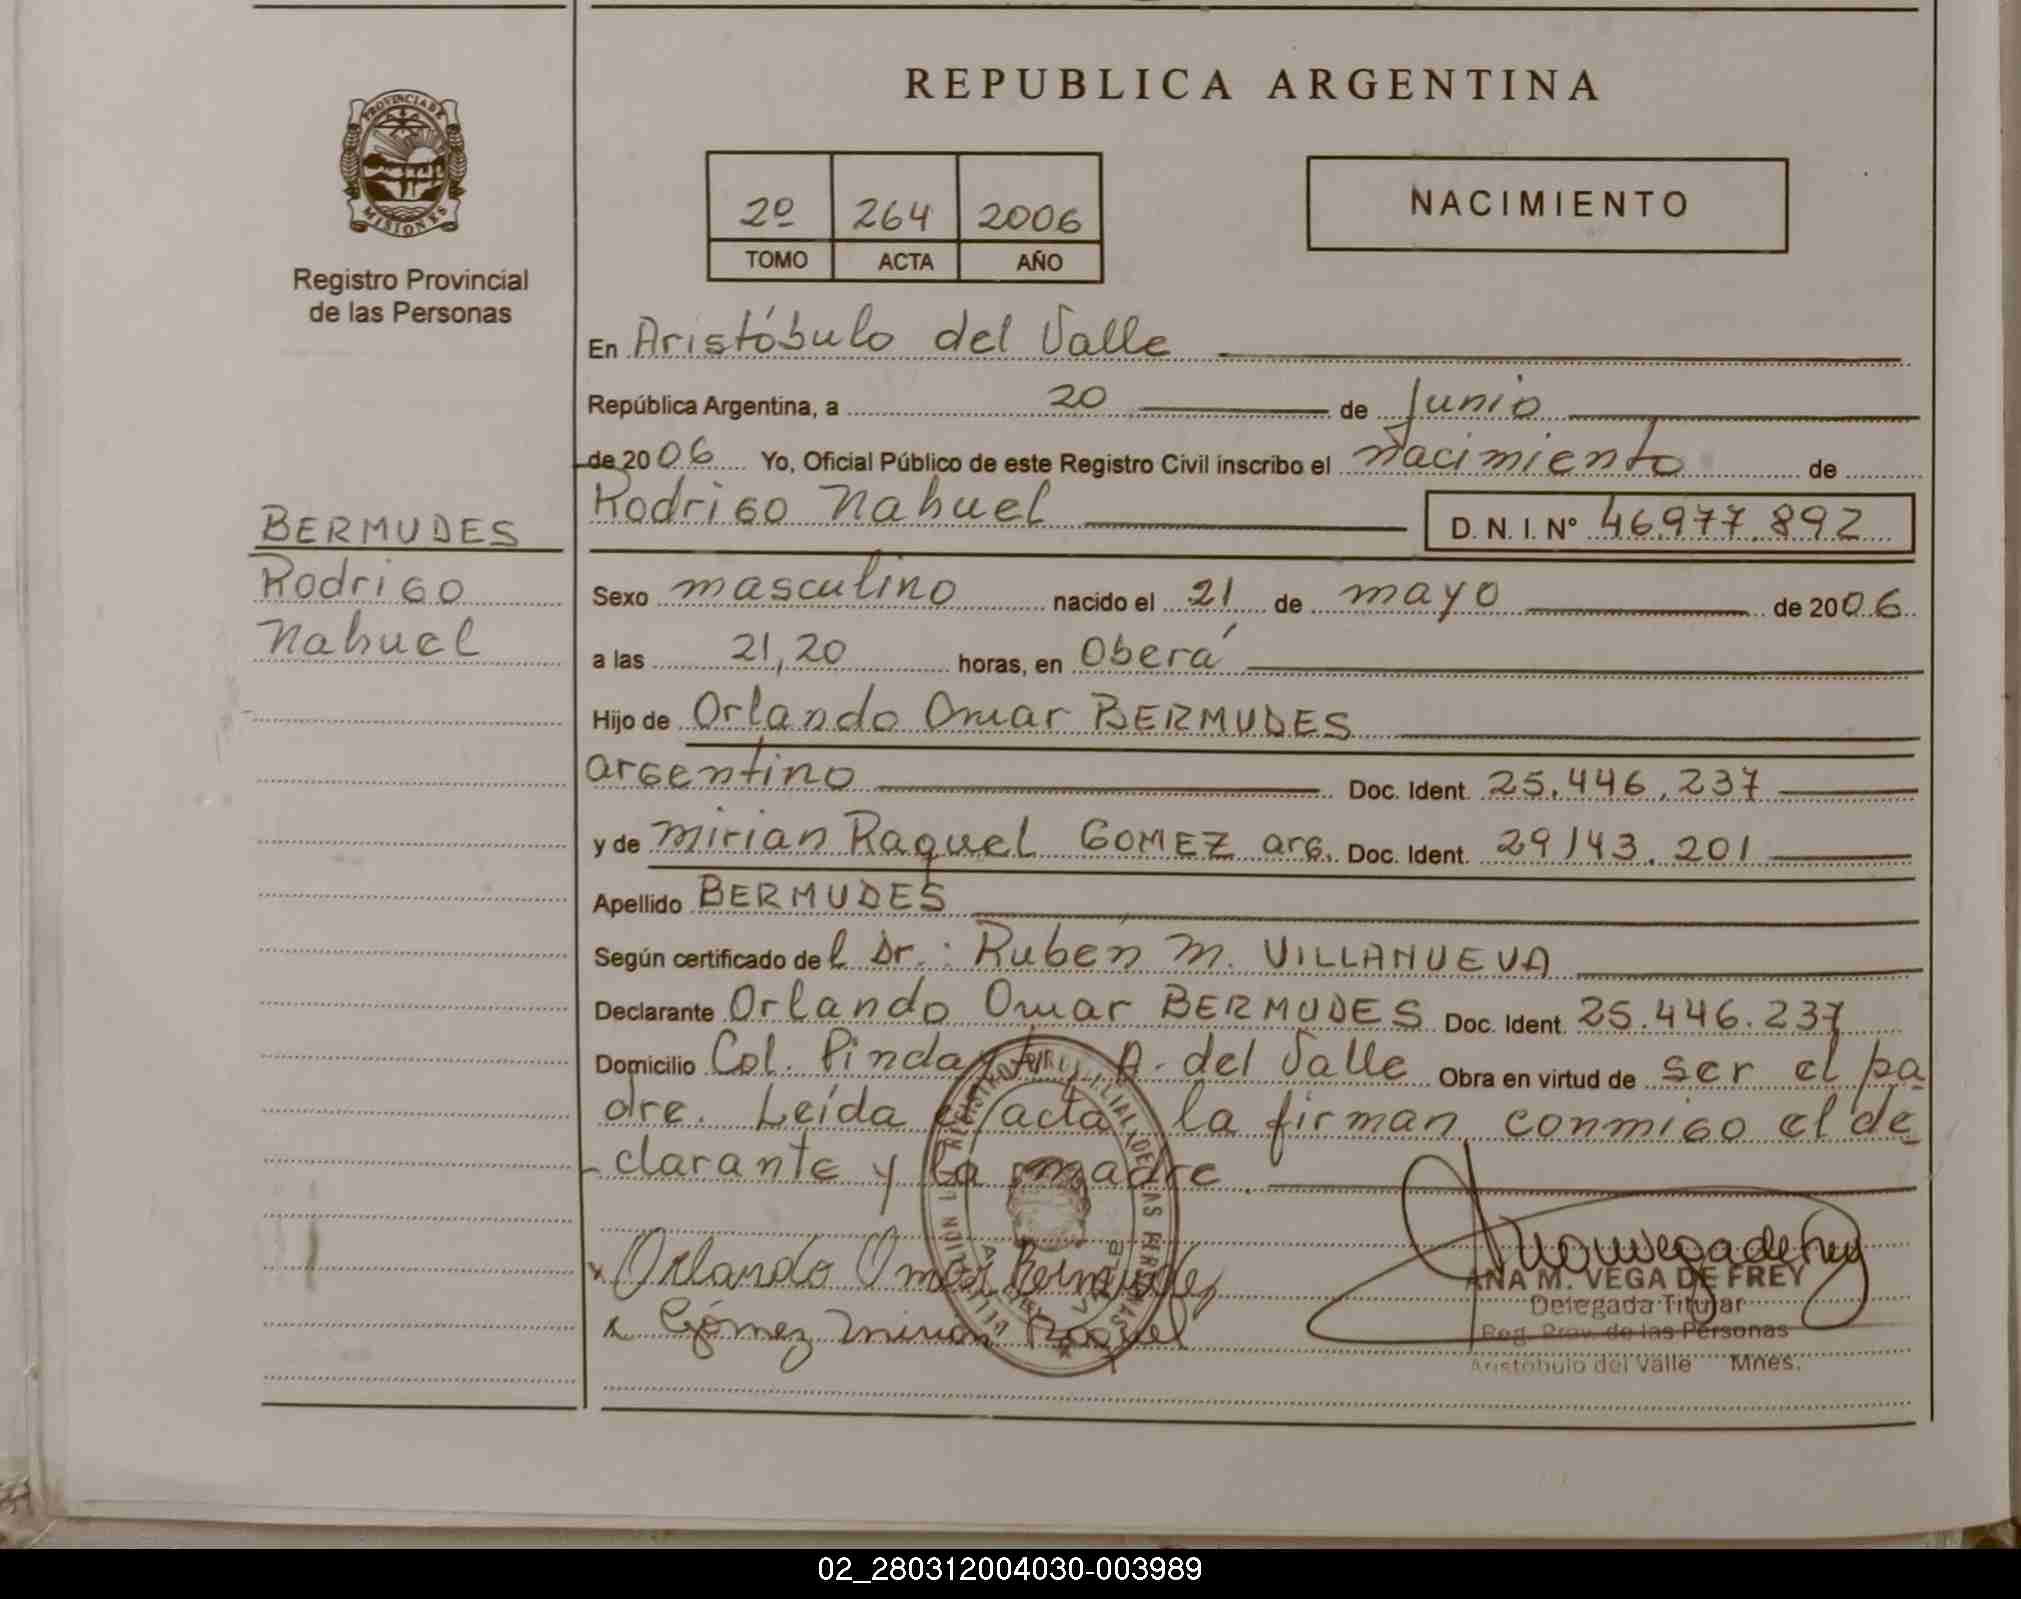 REPUBLICA ARGENTINA
PROVINCIA DE
MISIONES
Registro Provincial
de las Personas
2º 264 2006
TOMO ACTA AÑO
NACIMIENTO
En Aristóbulo del Valle
República Argentina, a 20 de Junio
de 2006 Yo, Oficial Público de este Registro Civil inscribo el Nacimiento de
BERMUDES
Rodrigo
Nahuel
Rodrigo Nahuel D. N. I. Nº 46.977.892
Sexo masculino nacido el 21 de mayo de 2006
a las 21,20 horas, en Oberá
Hijo de Orlando Omar BERMUDES
argentino Doc. Ident. 25.446.237
y de Mirian Raquel GOMEZ arg. Doc. Ident. 29143.201
Apellido BERMUDES
Según certificado del Dr.: Rubén M. VILLANUEVA
Declarante Orlando Omar BERMUDES Doc. Ident. 25.446.237
Domicilio Col. A. del Valle Obra en virtud de ser el pa
dre. Leída el acta la firman conmigo el de
clarante y la madre.
Orlando Omar Bermudes
Gómez Mirian Raquel
ANA M. VEGA DE FREY
Delegada Titular
Reg. Prov. de las Personas
Aristóbulo del Valle Mnes.
02_280312004030-003989